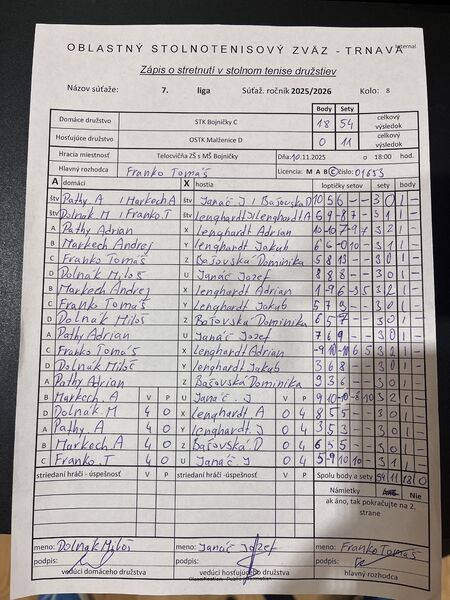 Internal
OBLASTNÝ STOLNOTENISOVÝ ZVÄZ - TRNAVA
Zápis o stretnutí v stolnom tenise družstiev
Názov súťaže: 7. liga Súťaž. ročník 2025/2026 Kolo: 8
Body Sety
Domáce družstvo STK Bojničky C 18 54 celkový výsledok
Hosťujúce družstvo OSTK Malženice D 0 11 celkový výsledok
Hracia miestnosť Telocvičňa ZŠ s MŠ Bojničky Dňa: 10.11.2025 o 18:00 hod.
Hlavný rozhodca Franko Tomáš Licencia: M A B C číslo: 01653
A domáci X hostia loptičky setov sety body
štv Pathy A / Markech A štv Janáč J / Bašovská D 10 5 6 - - 3 0 1 -
štv Dolnák M / Franko T štv Lenghardt J / Lenghardt A 6 9 -8 7 - 3 1 1 -
A Pathy Adrian X Lenghardt Adrian
B Markech Andrej Y Lenghardt Jakub 6 6 -0 10 - 3 1 1 -
C Franko Tomáš Z Bašovská Dominika 5 8 13 - - 3 0 1 -
D Dolnák Miloš U Janáč Jozef 8 8 8 - - 3 0 1 -
B Markech Andrej X Lenghardt Adrian 1 -9 6 -3 5 3 2 1 -
C Franko Tomáš Y Lenghardt Jakub 5 7 9 - - 3 0 1 -
D Dolnák Miloš Z Bašovská Dominika 6 5 7 - - 3 0 1 -
A Pathy Adrian U Janáč Jozef 7 6 9 - - 3 0 1 -
C Franko Tomáš X Lenghardt Adrian -9 10 -10 6 5 3 2 1 -
D Dolnák Miloš Y Lenghardt Jakub 3 6 8 - - 3 0 1 -
A Pathy Adrian Z Bašovská Dominika 9 3 6 - - 3 0 1 -
B Markech. A V P U Janáč. J V P
D Dolnák. M 4 0 X Lenghardt A 0 4 8 5 5 - - 3 0 1 -
A Pathy. A 4 0 Y Lenghardt. J 0 4 3 5 3 - - 3 0 1 -
B Markech. A 4 0 Z Bašovská. D 0 4 6 3 5 - - 3 0 1 -
C Franko. T 4 0 U Janáč. J 0 4 5 -9 10 10 - 3 1 1 -
striedaní hráči - úspešnosť V P striedaní hráči - úspešnosť V P Spolu body a sety 54 11 18 0
Námietky
Áno Nie
ak áno, tak pokračujte na 2, strane
meno: Dolnák Miloš meno: Janáč Jozef meno: Franko Tomáš
podpis: podpis: podpis:
vedúci domáceho družstva vedúci hosťujúceho družstva hlavný rozhodca